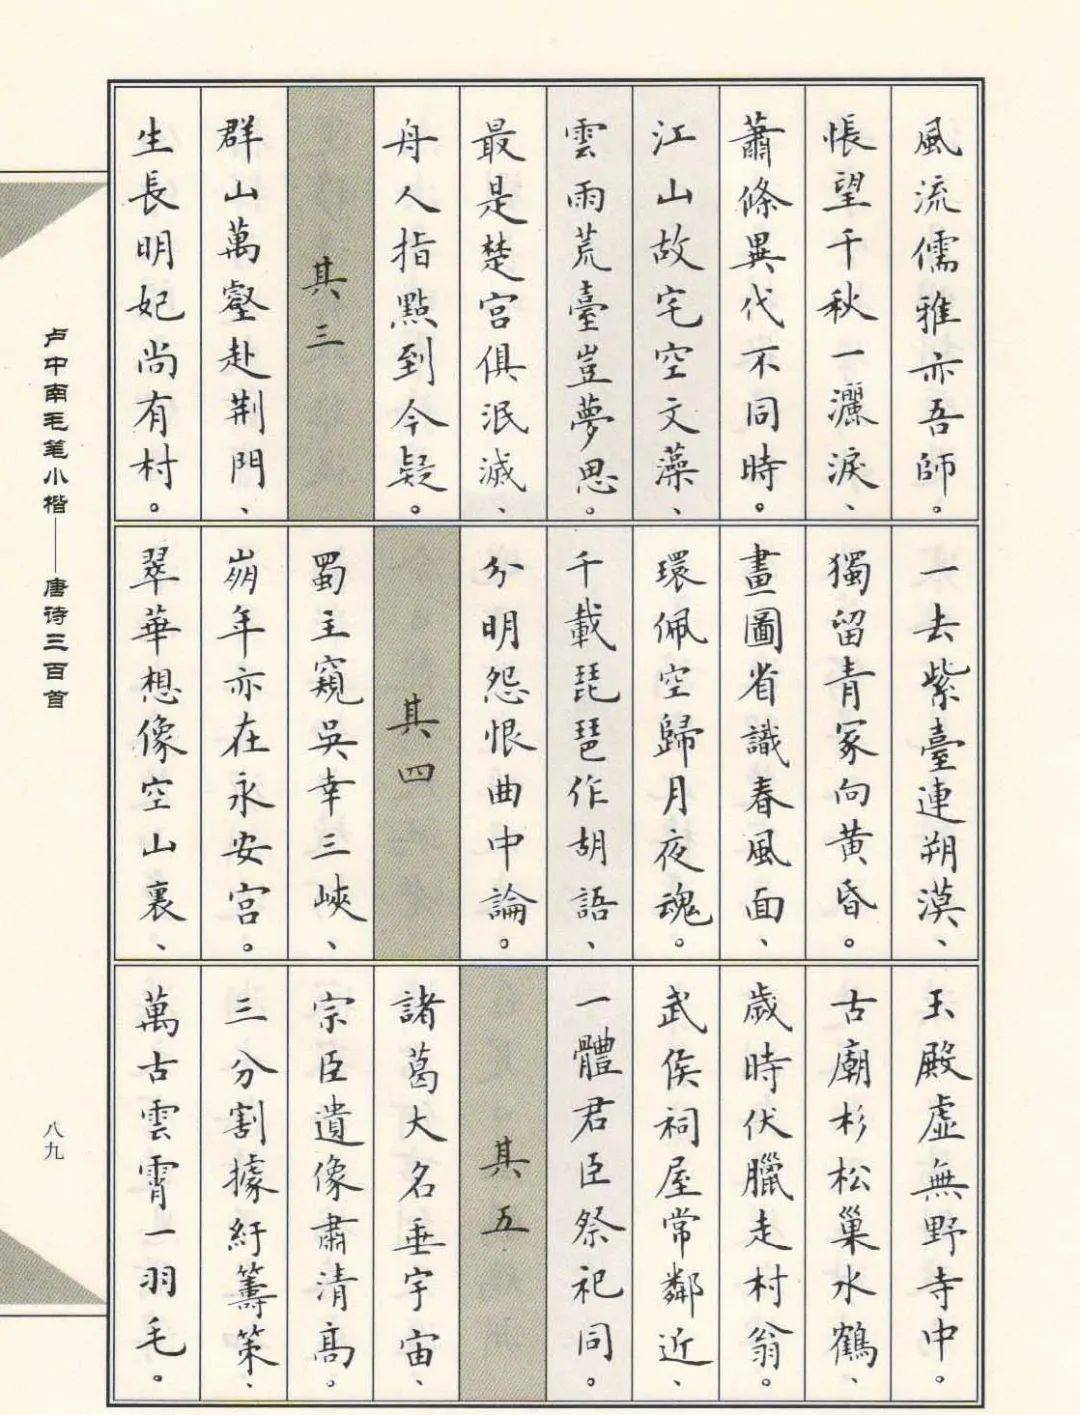 風流儒雅亦吾師。
悵望千秋一灑淚、
蕭條異代不同時。
江山故宅空文藻、
雲雨荒臺豈夢思。
最是楚宮俱泯滅、
舟人指點到今疑。
其三
群山萬壑赴荆門、
生長明妃尚有村。
一去紫臺連朔漠、
獨留青冢向黃昏。
畫圖省識春風面、
環佩空歸月夜魂。
千載琵琶作胡語、
分明怨恨曲中論。
其四
蜀主窺吳幸三峽、
崩年亦在永安宮。
翠華想像空山裏、
玉殿虛無野寺中。
古廟杉松巢水鶴、
歲時伏臘走村翁。
武侯祠屋常鄰近、
一體君臣祭祀同。
其五
諸葛大名垂宇宙、
宗臣遺像肅清高。
三分割據紆籌策、
萬古雲霄一羽毛。
卢中南毛笔小楷——唐诗三百首
八九